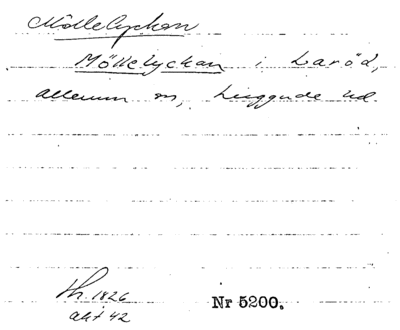 Möllelyckan
Möllelyckan i Laröd,
Allerum sn, Luggude hd
Th. 1826
akt 42
Nr 5200.